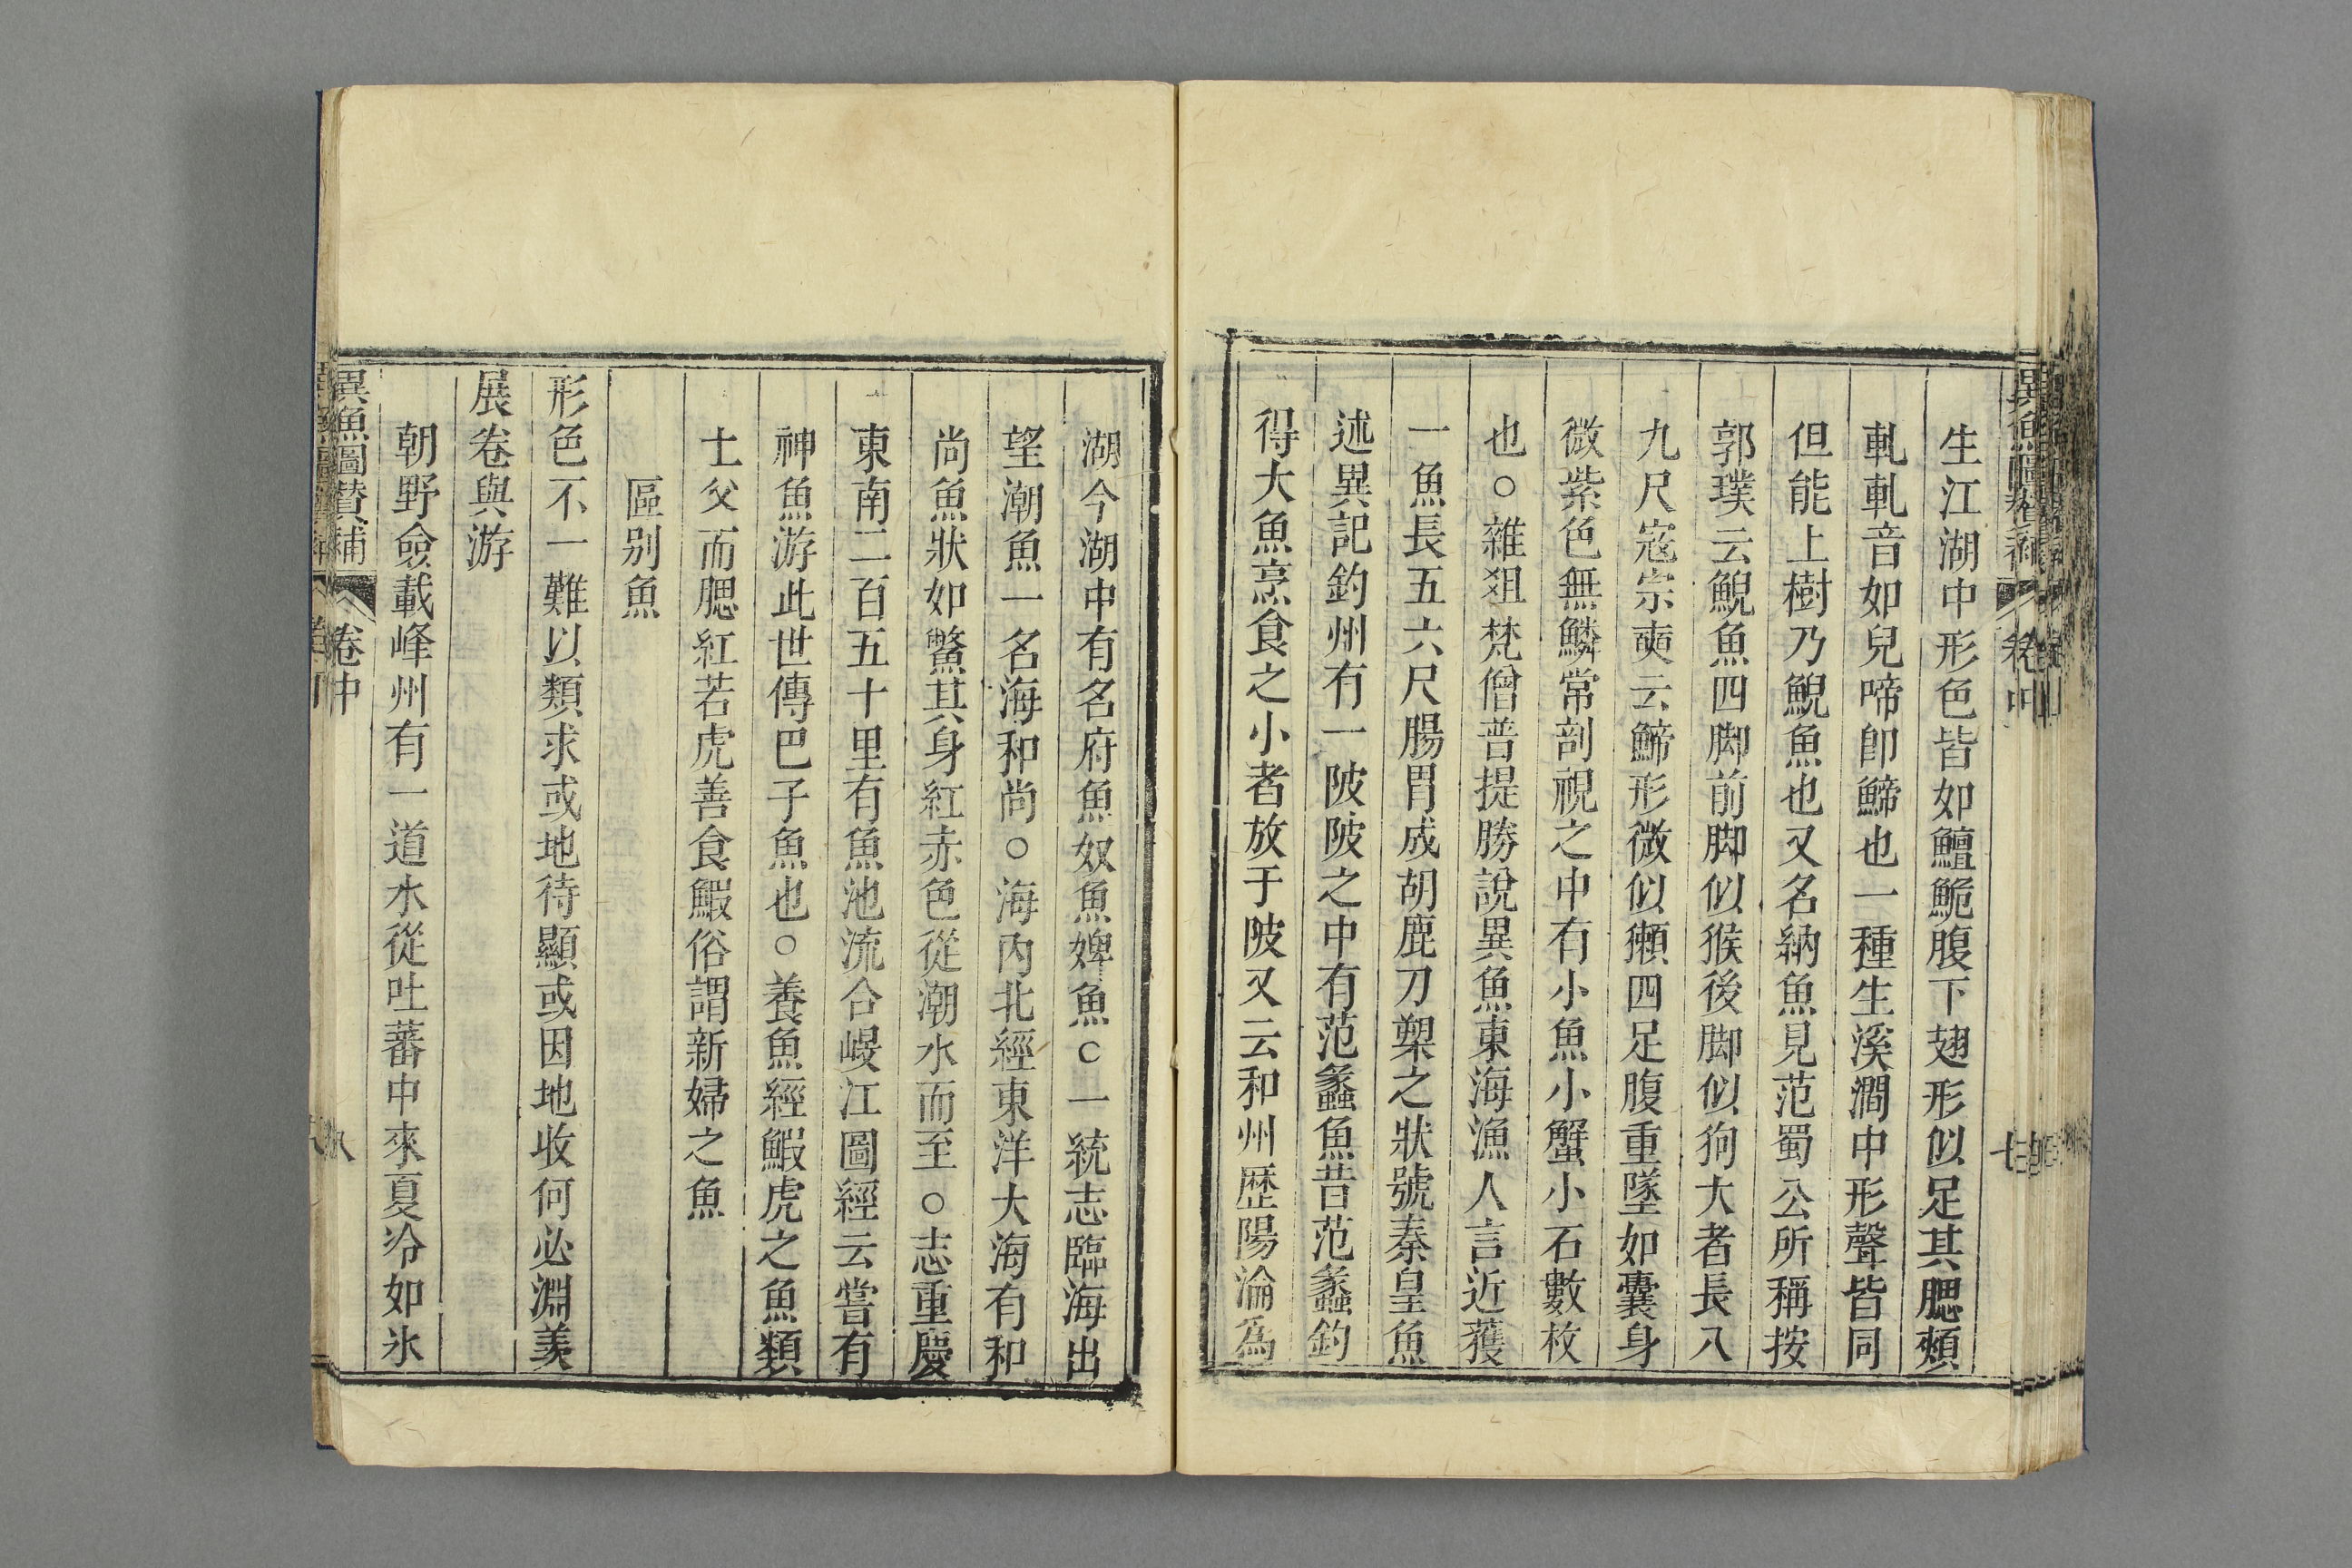 生江湖中形色皆如鱣鮠腹下翅形似足其腮頰
軋軋音如兒啼卽䱱也一種生溪澗中形聲皆同
但能上樹乃鯢魚也又名納魚見范蜀公所稱按
郭璞云鯢魚四脚前脚似猴後脚似狗大者長八
九尺寇宗奭云䱱形微似獺四足腹重墜如囊身
微紫色無鱗常剖視之中有小魚小蟹小石數枚
也○雜俎梵僧普提勝說異魚東海漁人言近獲
一魚長五六尺腸胃成胡鹿刀槊之狀號秦皇魚
述異記釣州有一陂陂之中有范蠡魚昔范蠡釣
得大魚烹食之小者放于陂又云和州歷陽淪爲
湖今湖中有名府魚奴魚婢魚○一統志臨海出
望潮魚一名海和尚○海內北經東洋大海有和
尚魚狀如鱉其身紅赤色從潮水而至○志重慶
東南二百五十里有魚池流合嵈江圖經云嘗有
神魚游此世傳巴子魚也○養魚經鰕虎之魚類
士父而腮紅若虎善食鰕俗謂新婦之魚
區别魚
形色不一難以類求或地待顯或因地收何必淵羨
展卷與游
朝野僉載峰州有一道水從吐蕃中來夏冷如氷
異魚圖贊補
卷中
八